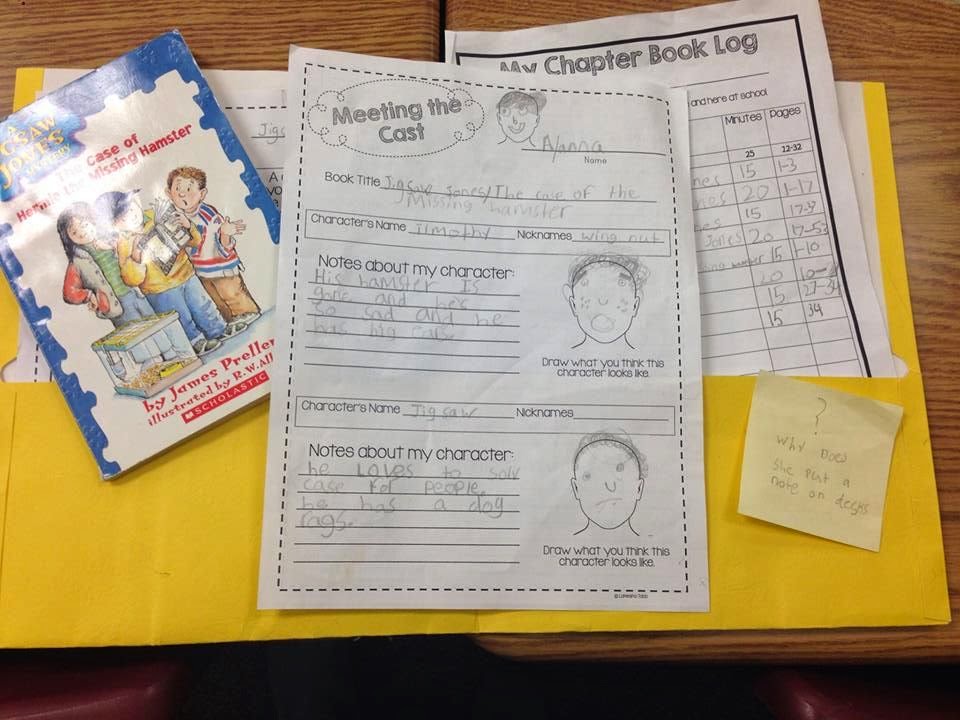 A
JIGSAW
JONES
MYSTERY
The Case of
Hermie the Missing Hamster
by James Preller
illustrated by R.W. All
SCHOLASTIC
Jigs
Meeting the
Cast
Alanna
Name
Book Title Jigsaw Jones/The case of the
Missing hamster
Character's Name Timothy Nicknames wing nut
Notes about my character:
His hamster Is
gone and he's
so sad and he
has big ears
Draw what you think this
character looks like.
Character's Name Jigsaw Nicknames
Notes about my character:
he Loves to solv
case for people.
he has a dog
rags.
Draw what you think this
character looks like.
My Chapter Book Log
and here at school
Minutes pages
25 22-32
nes 15 1-3
nes 20 1-17
15 17-37
Jones 20 17-53
15 1-10
20
15
15 34
?
Why Does
She put a
note on desks